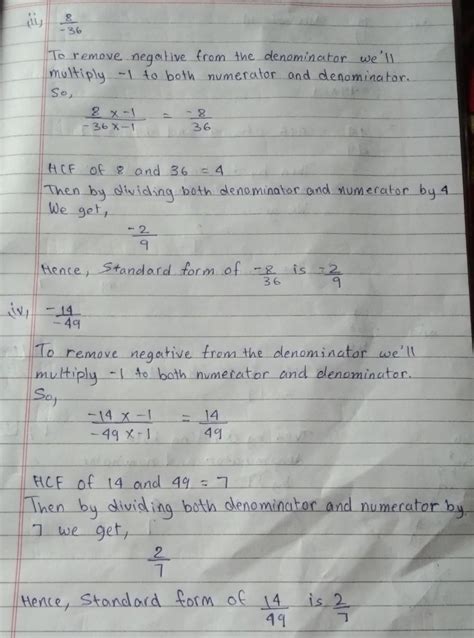 iii, 8/-36
To remove negative from the denominator we'll
multiply -1 to both numerator and denominator.
So,
8 x -1 / -36 x -1 = -8/36
HCF of 8 and 36 = 4
Then by dividing both denominator and numerator by 4
We get,
-2/9
Hence, Standard form of -8/36 is -2/9
iv, -14/-49
To remove negative from the denominator we'll
multiply -1 to both numerator and denominator.
So,
-14 x -1 / -49 x -1 = 14/49
HCF of 14 and 49 = 7
Then by dividing both denominator and numerator by
7 we get,
2/7
Hence, Standard form of 14/49 is 2/7